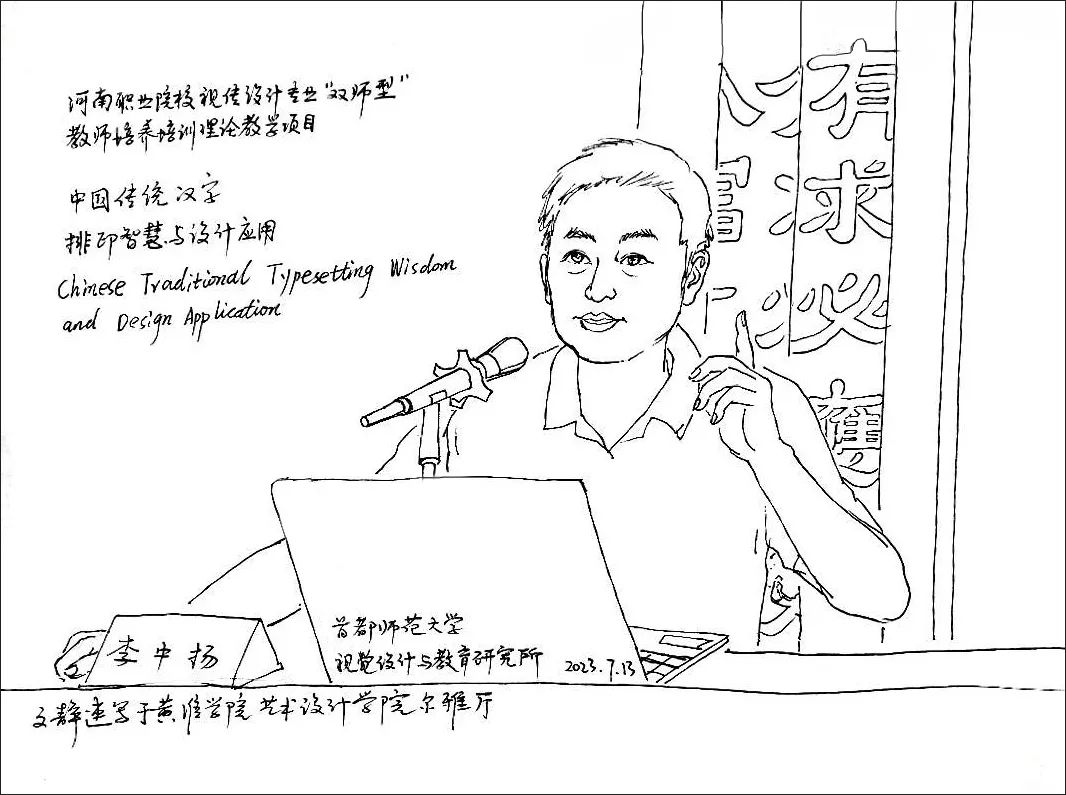 河南职业院校视传设计专业“双师型”
教师培养培训理论教学项目
中国传统汉字
排印智慧与设计应用
Chinese Traditional Typesetting Wisdom
and Design Application
有求必應
李中扬
首都师范大学
视觉设计与教育研究所 2023.7.13
文静速写于黄淮学院艺术设计学院尔雅厅